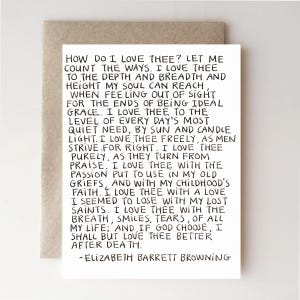 HOW DO I LOVE THEE? LET ME
COUNT THE WAYS. I LOVE THEE
TO THE DEPTH AND BREADTH AND
HEIGHT MY SOUL CAN REACH,
WHEN FEELING OUT OF SIGHT
FOR THE ENDS OF BEING IDEAL
GRACE. I LOVE THEE TO THE
LEVEL OF EVERY DAY'S MOST
QUIET NEED, BY SUN AND CANDLE
LIGHT. I LOVE THEE FREELY, AS MEN
STRIVE FOR RIGHT. I LOVE THEE
PURELY, AS THEY TURN FROM
PRAISE. I LOVE THEE WITH THE
PASSION PUT TO USE IN MY OLD
GRIEFS, AND WITH MY CHILDHOOD'S
FAITH. I LOVE THEE WITH A LOVE
I SEEMED TO LOSE WITH MY LOST
SAINTS. I LOVE THEE WITH THE
BREATH, SMILES, TEARS, OF ALL
MY LIFE; AND, IF GOD CHOOSE, I
SHALL BUT LOVE THEE BETTER
AFTER DEATH.
-ELIZABETH BARRETT BROWNING